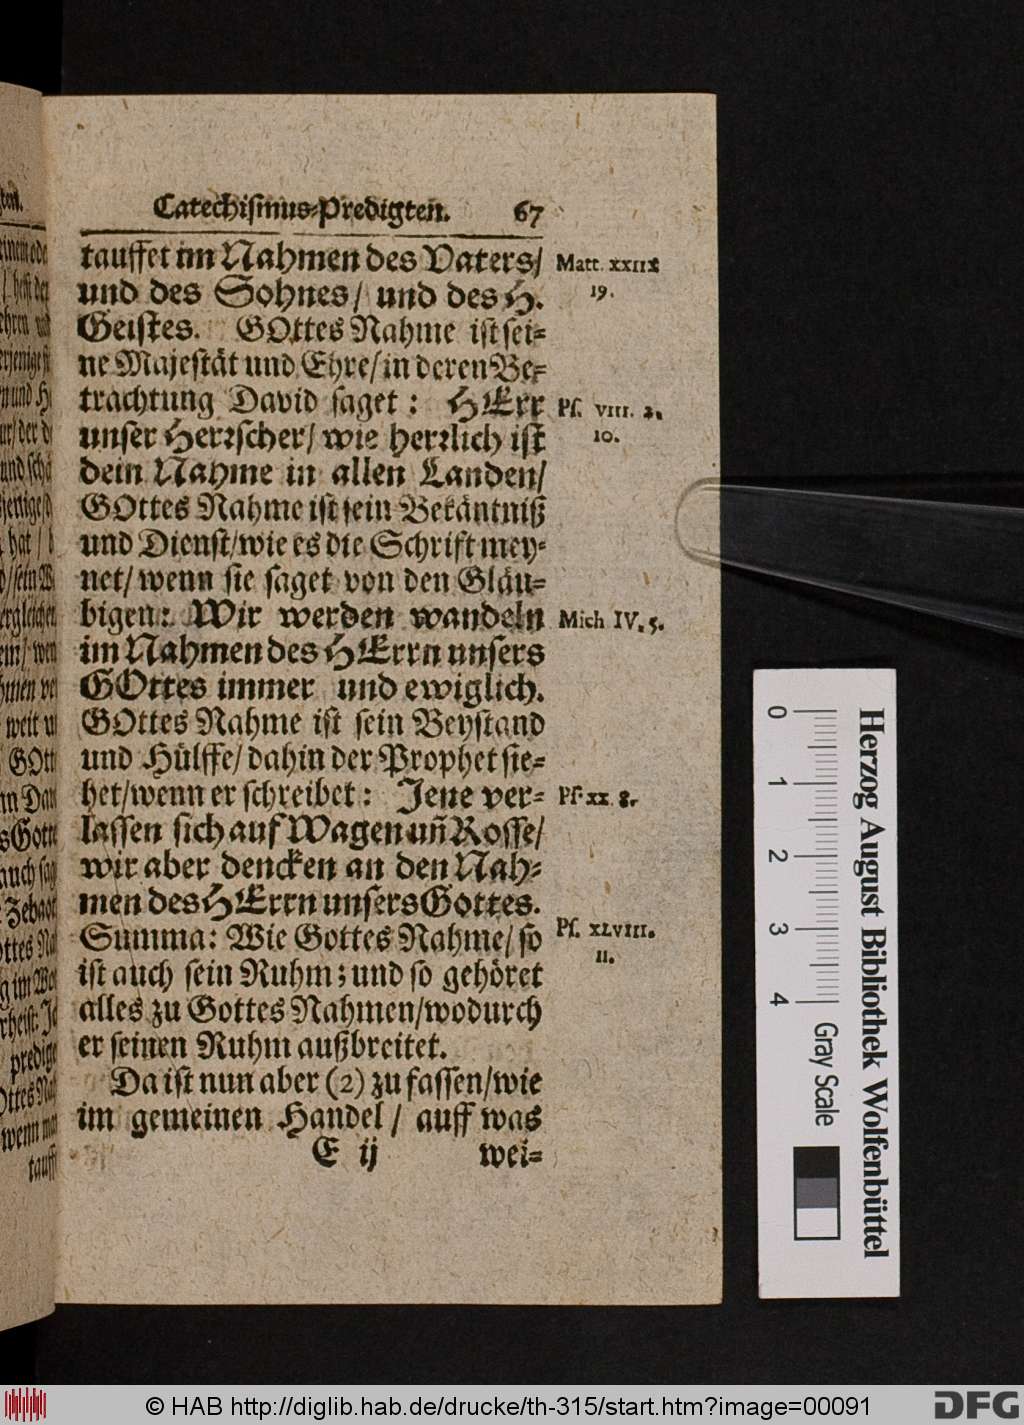 Catechismus-Predigten. 67
tauffet im Nahmen des Vaters/
Matt. XXIIX
und des Sohnes/ und des H.
19.
Geistes. GOttes Nahme ist sei-
ne Majestät und Ehre/ in deren Be-
trachtung David saget: HErr
Ps. VIII. 2.
unser Herrscher/ wie herrlich ist
10.
dein Nahme in allen Landen/
GOttes Nahme ist sein Bekäntniß
und Dienst/ wie es die Schrift mey-
net/ wenn sie saget von den Gläu-
bigen: Wir werden wandeln
Mich IV. 5.
im Nahmen des HErrn unsers
GOttes immer und ewiglich.
GOttes Nahme ist sein Beystand
und Hülffe/ dahin der Prophet sie-
het/ wenn er schreibet: Jene ver-
Ps. XX. 8.
lassen sich auf Wagen uñ Rosse/
wir aber dencken an den Nah-
men des HErrn unsers Gottes.
Ps. XLVIII.
Summa: Wie Gottes Nahme/ so
11.
ist auch sein Ruhm; und so gehöret
alles zu Gottes Nahmen/ wodurch
er seinen Ruhm außbreitet.
Da ist nun aber (2) zu fassen/ wie
im gemeinen Handel/ auff was
E ij wei-
0 1 2 3 4 Gray Scale
Herzog August Bibliothek Wolfenbüttel
© HAB http://diglib.hab.de/drucke/th-315/start.htm?image=00091
DFG